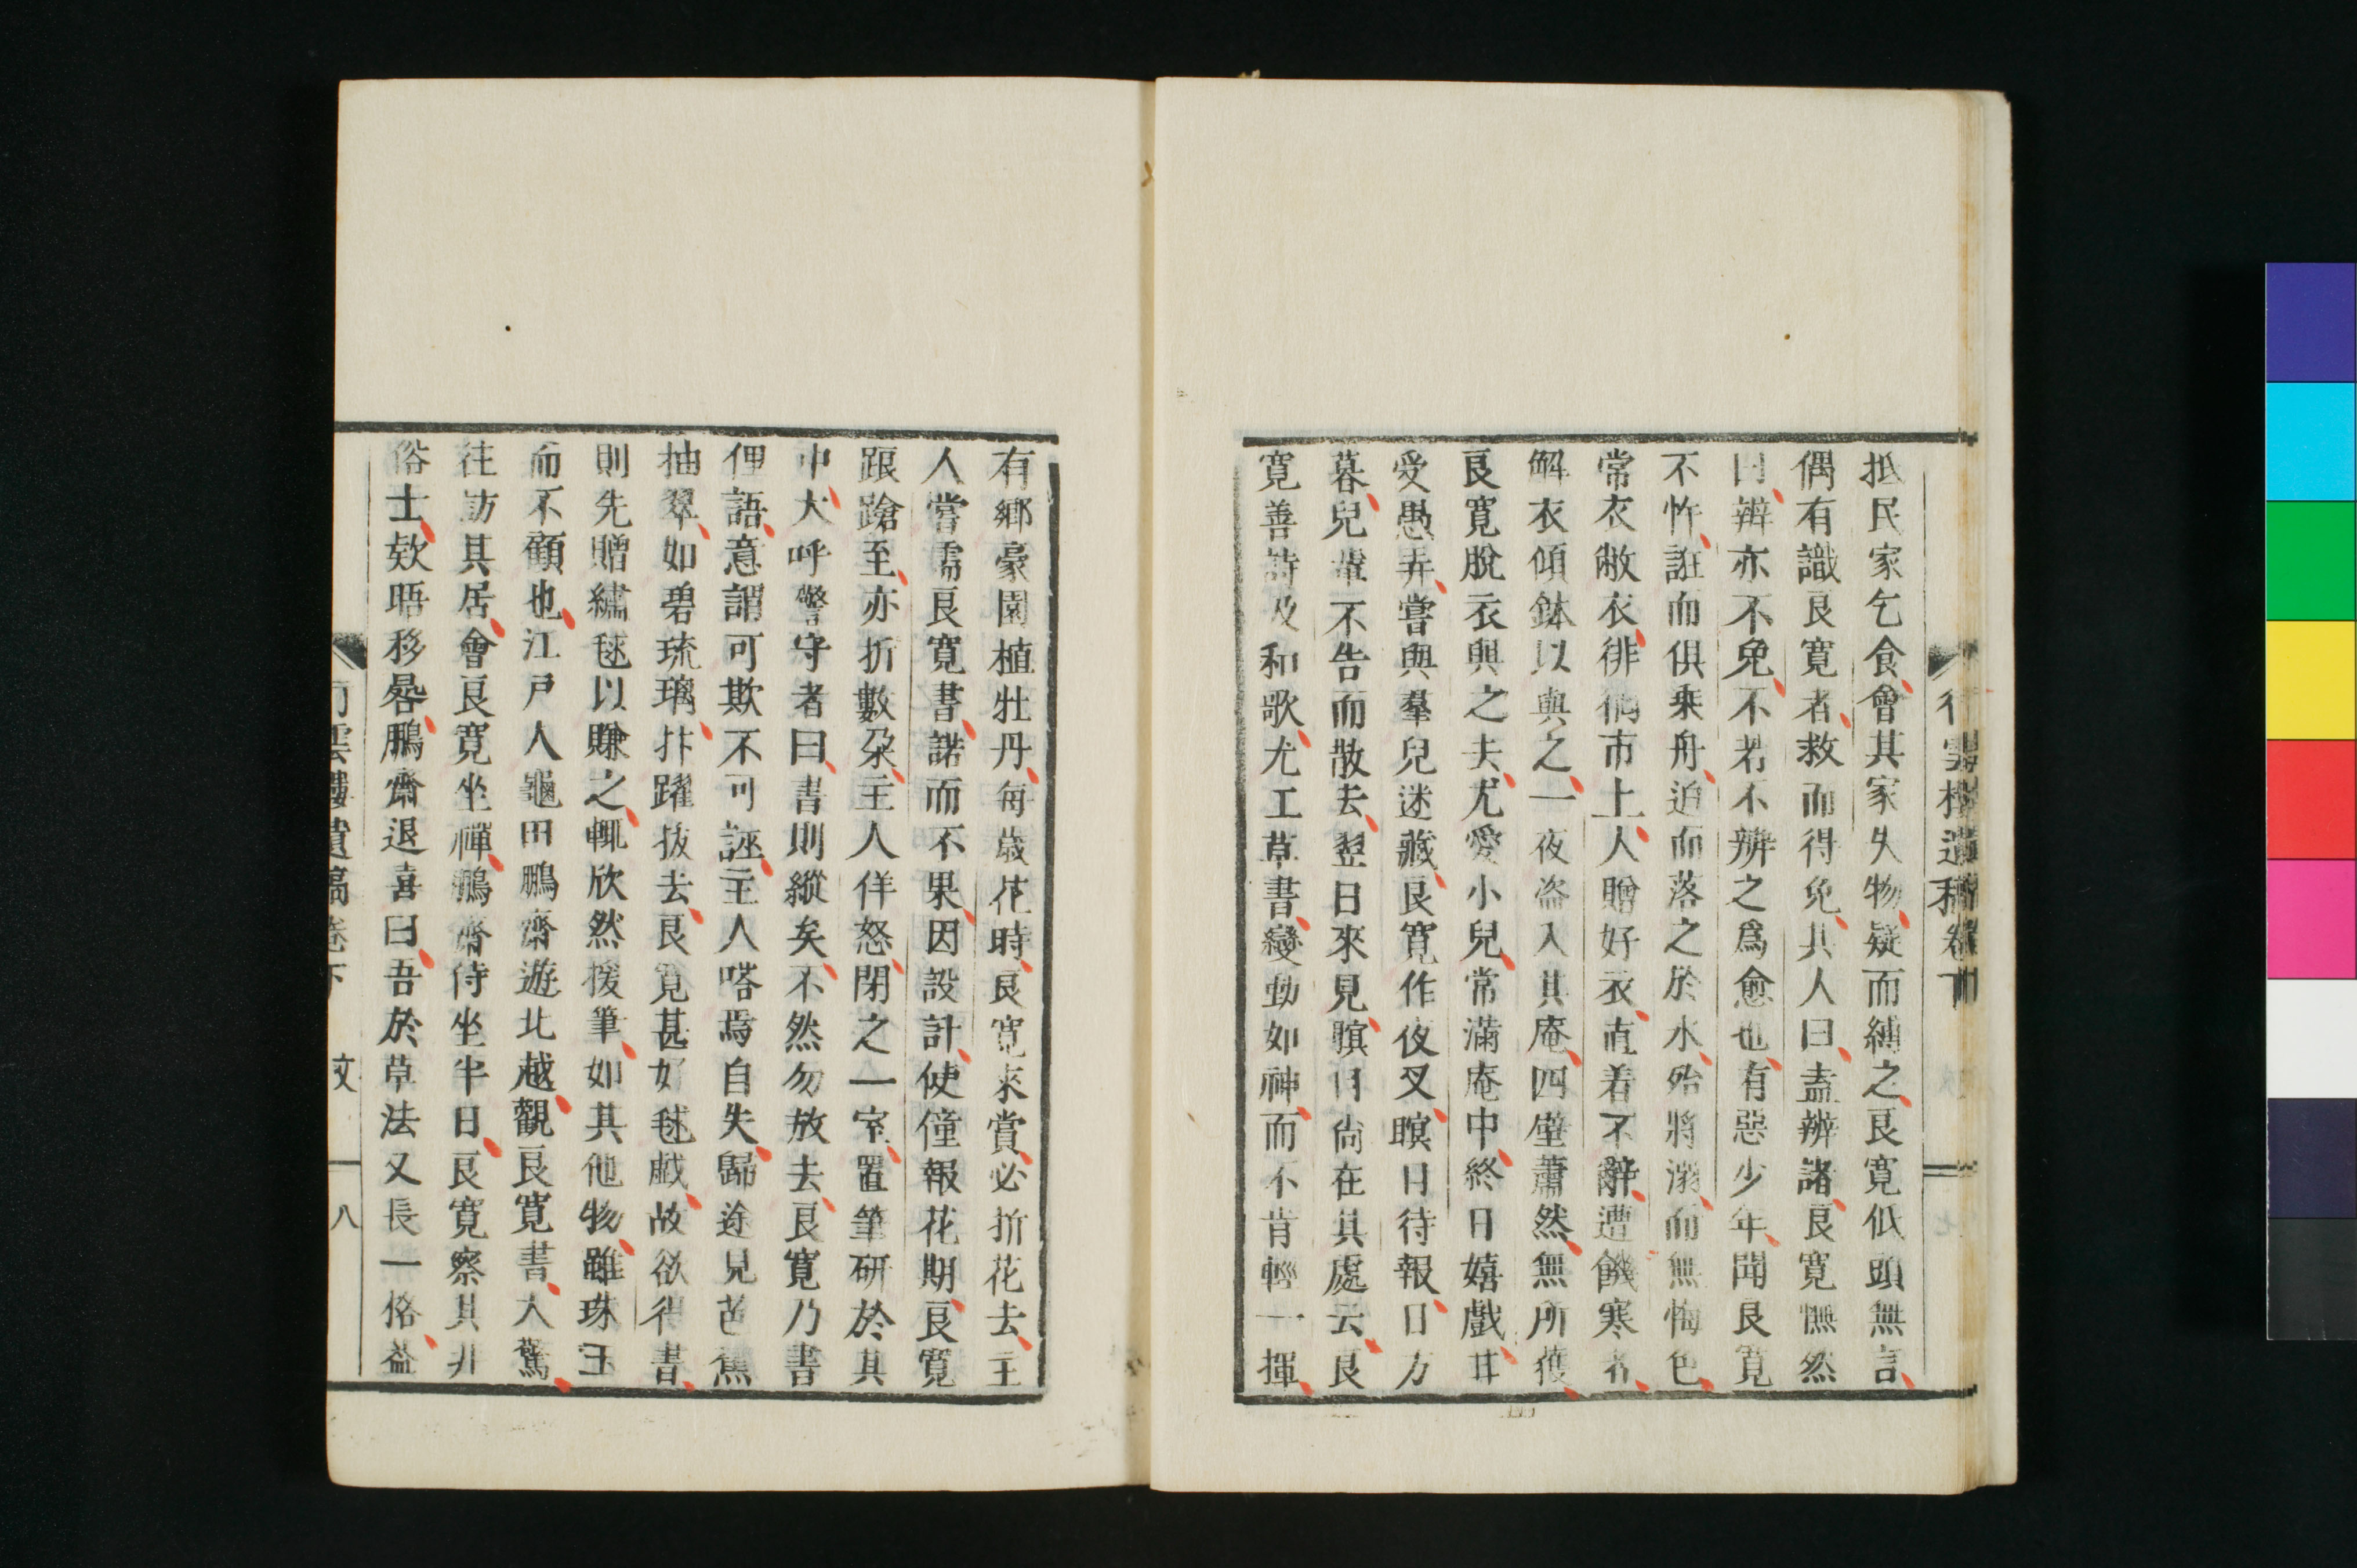 抵民家乞食會其家失物疑而縛之良寬低頭無言
偶有識良寬者救而得免其人曰盍辨諸良寬憮然
曰辨亦不免不若不辨之爲愈也有惡少年聞良寬
不忤誑而俱乘舟迫而落之於水殆將溺而無悔色
常衣敝衣徘徊市上人贈好衣直着不辭遭饑寒者
解衣傾鉢以與之一夜盗入其庵四壁蕭然無所獲
良寬脫衣與之去尤愛小兒常滿庵中終日嬉戲甘
愛愚弄嘗與羣兒迷藏良寬作夜叉瞑目待報日方
暮兒輩不告而散去翌日來見瞑目尙在其處云良
寬善詩及和歌尤工草書變動如神而不肯輕一揮
有鄉豪園植牡丹每歲花時良寬來賞必折花去主
人嘗需良寬書諾而不果因設計使僮報花期良寬
踉蹌至亦折數朶主人佯怒閉之一室置筆研於其
中大呼警守者曰書則縱矣不然勿放去良寬乃書
俚語意謂可欺不可誣主人嗒焉自失歸途見芭蕉
抽翠如碧琉璃抃躍拔去良寬甚好毬戲故欲得書
則先贈繡毬以賺之輒欣然援筆如其他物雖珠玉
而不顧也江戶人龜田鵬齋遊北越觀良寬書大驚
往訪其居會良寬坐禪鵬齋侍坐半日良寬察其非
俗士欵晤移晷鵬齋退喜曰吾於草法又長一格益
行雲樓遺稿卷下　文　八